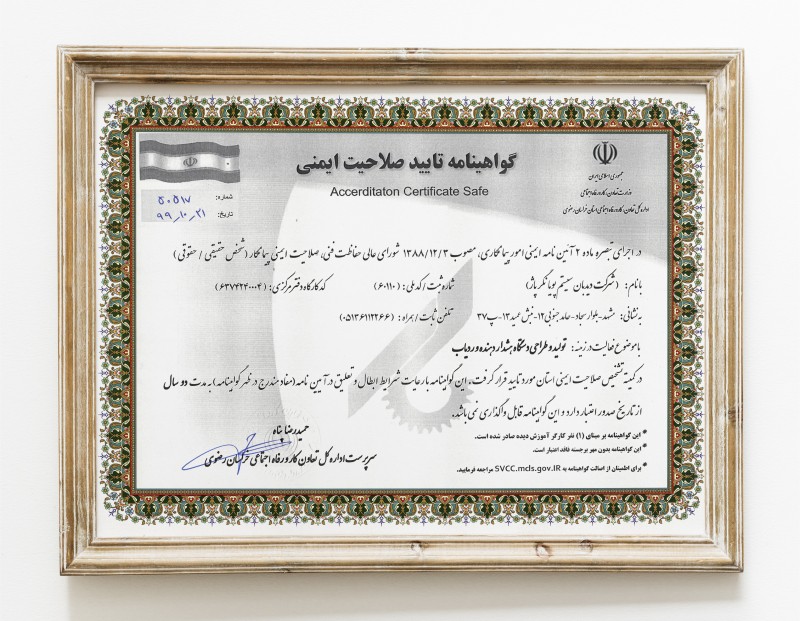 جمهوری اسلامی ایران
وزارت تعاون، کار و رفاه اجتماعی
اداره کل تعاون، کار و رفاه اجتماعی استان خراسان رضوی
گواهینامه تایید صلاحیت ایمنی
Accerditaton Certificate Safe
شماره: ۵۰۵۱۷
تاریخ: ۹۹_۱۰_۲۱
در اجرای تبصره ماده ۲ آئین نامه ایمنی امور پیمانکاری، مصوب ۱۳۸۸/۱۲/۳ شورای عالی حفاظت فنی، صلاحیت ایمنی پیمانکار (شخص حقیقی / حقوقی)
با نام: (شرکت دیدبان سیستم پویا نگر پاژ) شماره ثبت / کد ملی: (۶۰۱۱۰) کد کارگاه دفتر مرکزی: (۶۳۷۴۲۴۰۰۰۴)
به نشانی: مشهد-بلوار سجاد-حامد جنوبی۱۲-نبش عمید۱۳-پ۳۷ تلفن ثابت / همراه: (۰۵۱۳۶۱۱۲۲۶۶)
با موضوع فعالیت در زمینه: تولید و طراحی دستگاه هشدار دهنده و ردیاب
در کمیته تشخیص صلاحیت ایمنی استان مورد تایید قرار گرفت. این گواهینامه با رعایت شرایط ابطال و تعلیق در آیین نامه (مفاد مندرج در ظهر گواهینامه) به مدت دو سال
از تاریخ صدور اعتبار دارد و این گواهینامه قابل واگذاری نمی باشد.
* این گواهینامه بر مبنای (۱) نفر کارگر آموزش دیده صادر شده است.
* این گواهینامه بدون مهر برجسته فاقد اعتبار است.
* برای اطمینان از اصالت گواهینامه به SVCC.mcls.gov.IR مراجعه فرمایید.
حمیدرضا پناه
سرپرست اداره کل تعاون کار و رفاه اجتماعی خراسان رضوی